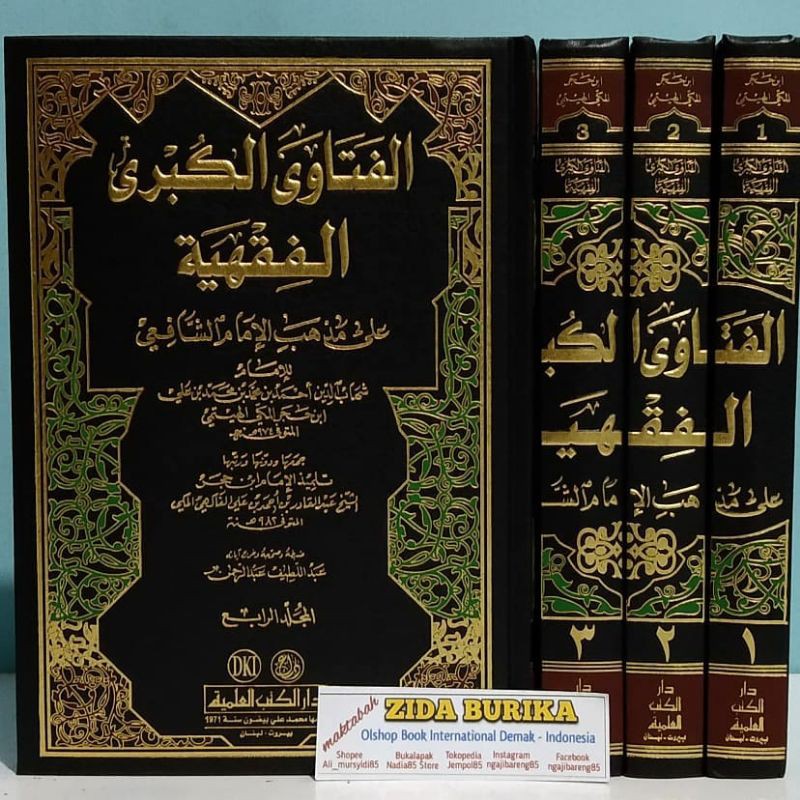 الفتاوى الكبرى
الفقهية
على مذهب الإمام الشافعي
للإمام
شهاب الدين أحمد بن محمد بن محمد بن علي
ابن حجر المكي الهيتمي
المتوفى ٩٧٤ هـ
جمعها ودونها ورتبها
تلميذ الإمام ابن حجر
الشيخ عبد القادر بن أحمد بن علي الفاكهي المكي
المتوفى ٩٨٢ هـ
ضبطه وصححه وخرج آياته
عبد اللطيف عبد الرحمن
المجلد الرابع
DKI
دار الكتب العلمية
محمد علي بيضون سنة 1971
بيروت - لبنان
ابن حجر
المكي الهيتمي
3
الفتاوى الكبرى
الفقهية
٣
دار
ابن حجر
المكي الهيتمي
2
الفتاوى الكبرى
الفقهية
٢
دار
الكتب
العلمية
بيروت - لبنان
ابن حجر
المكي الهيتمي
1
الفتاوى الكبرى
الفقهية
١
دار
الكتب
العلمية
بيروت - لبنان
الفتاوى الكبـ
الفقهيـ
على مذهب الإمام الشـ
maktabah ZIDA BURIKA
Olshop Book International Demak - Indonesia
Shopee Bukalapak Tokopedia Instagram Facebook
Ali_mursyidi85 Nadia85 Store Jempol85 ngajibareng85 ngajibareng85